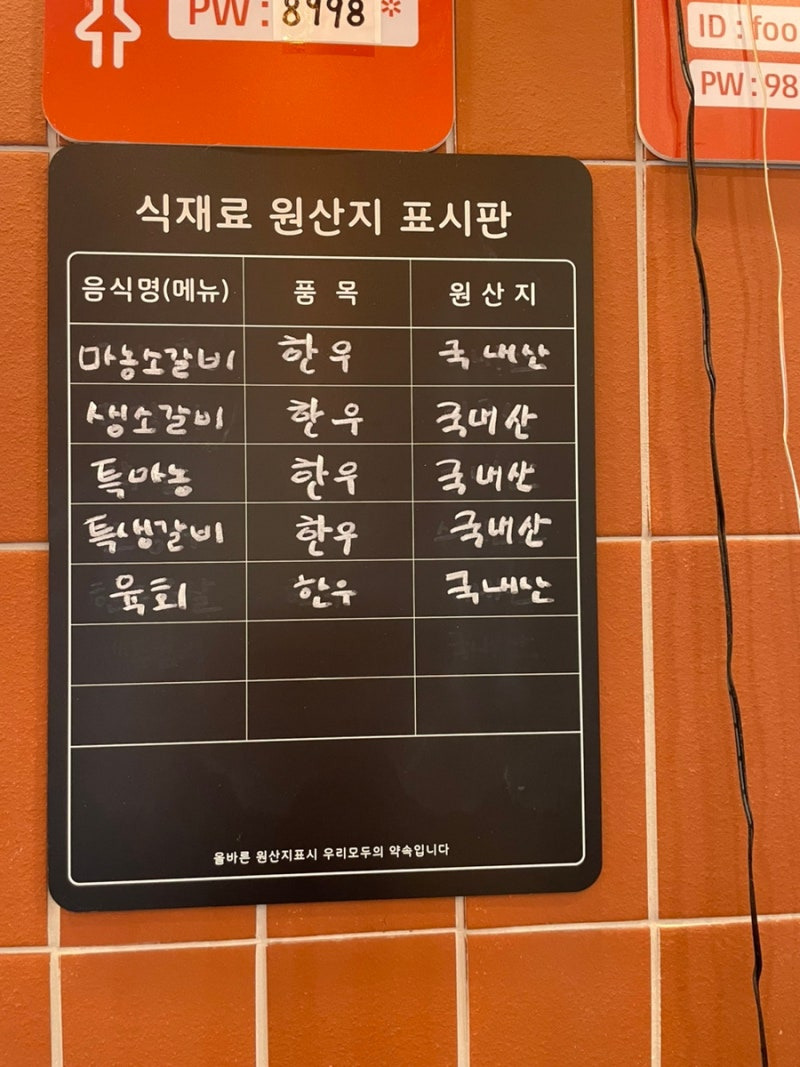 PW : 8998 *
ID : foo
PW : 98
식재료 원산지 표시판
음식명(메뉴) 품 목 원 산 지
마농소갈비 한우 국내산
생소갈비 한우 국내산
특마농 한우 국내산
특생갈비 한우 국내산
육회 한우 국내산
올바른 원산지표시 우리모두의 약속입니다